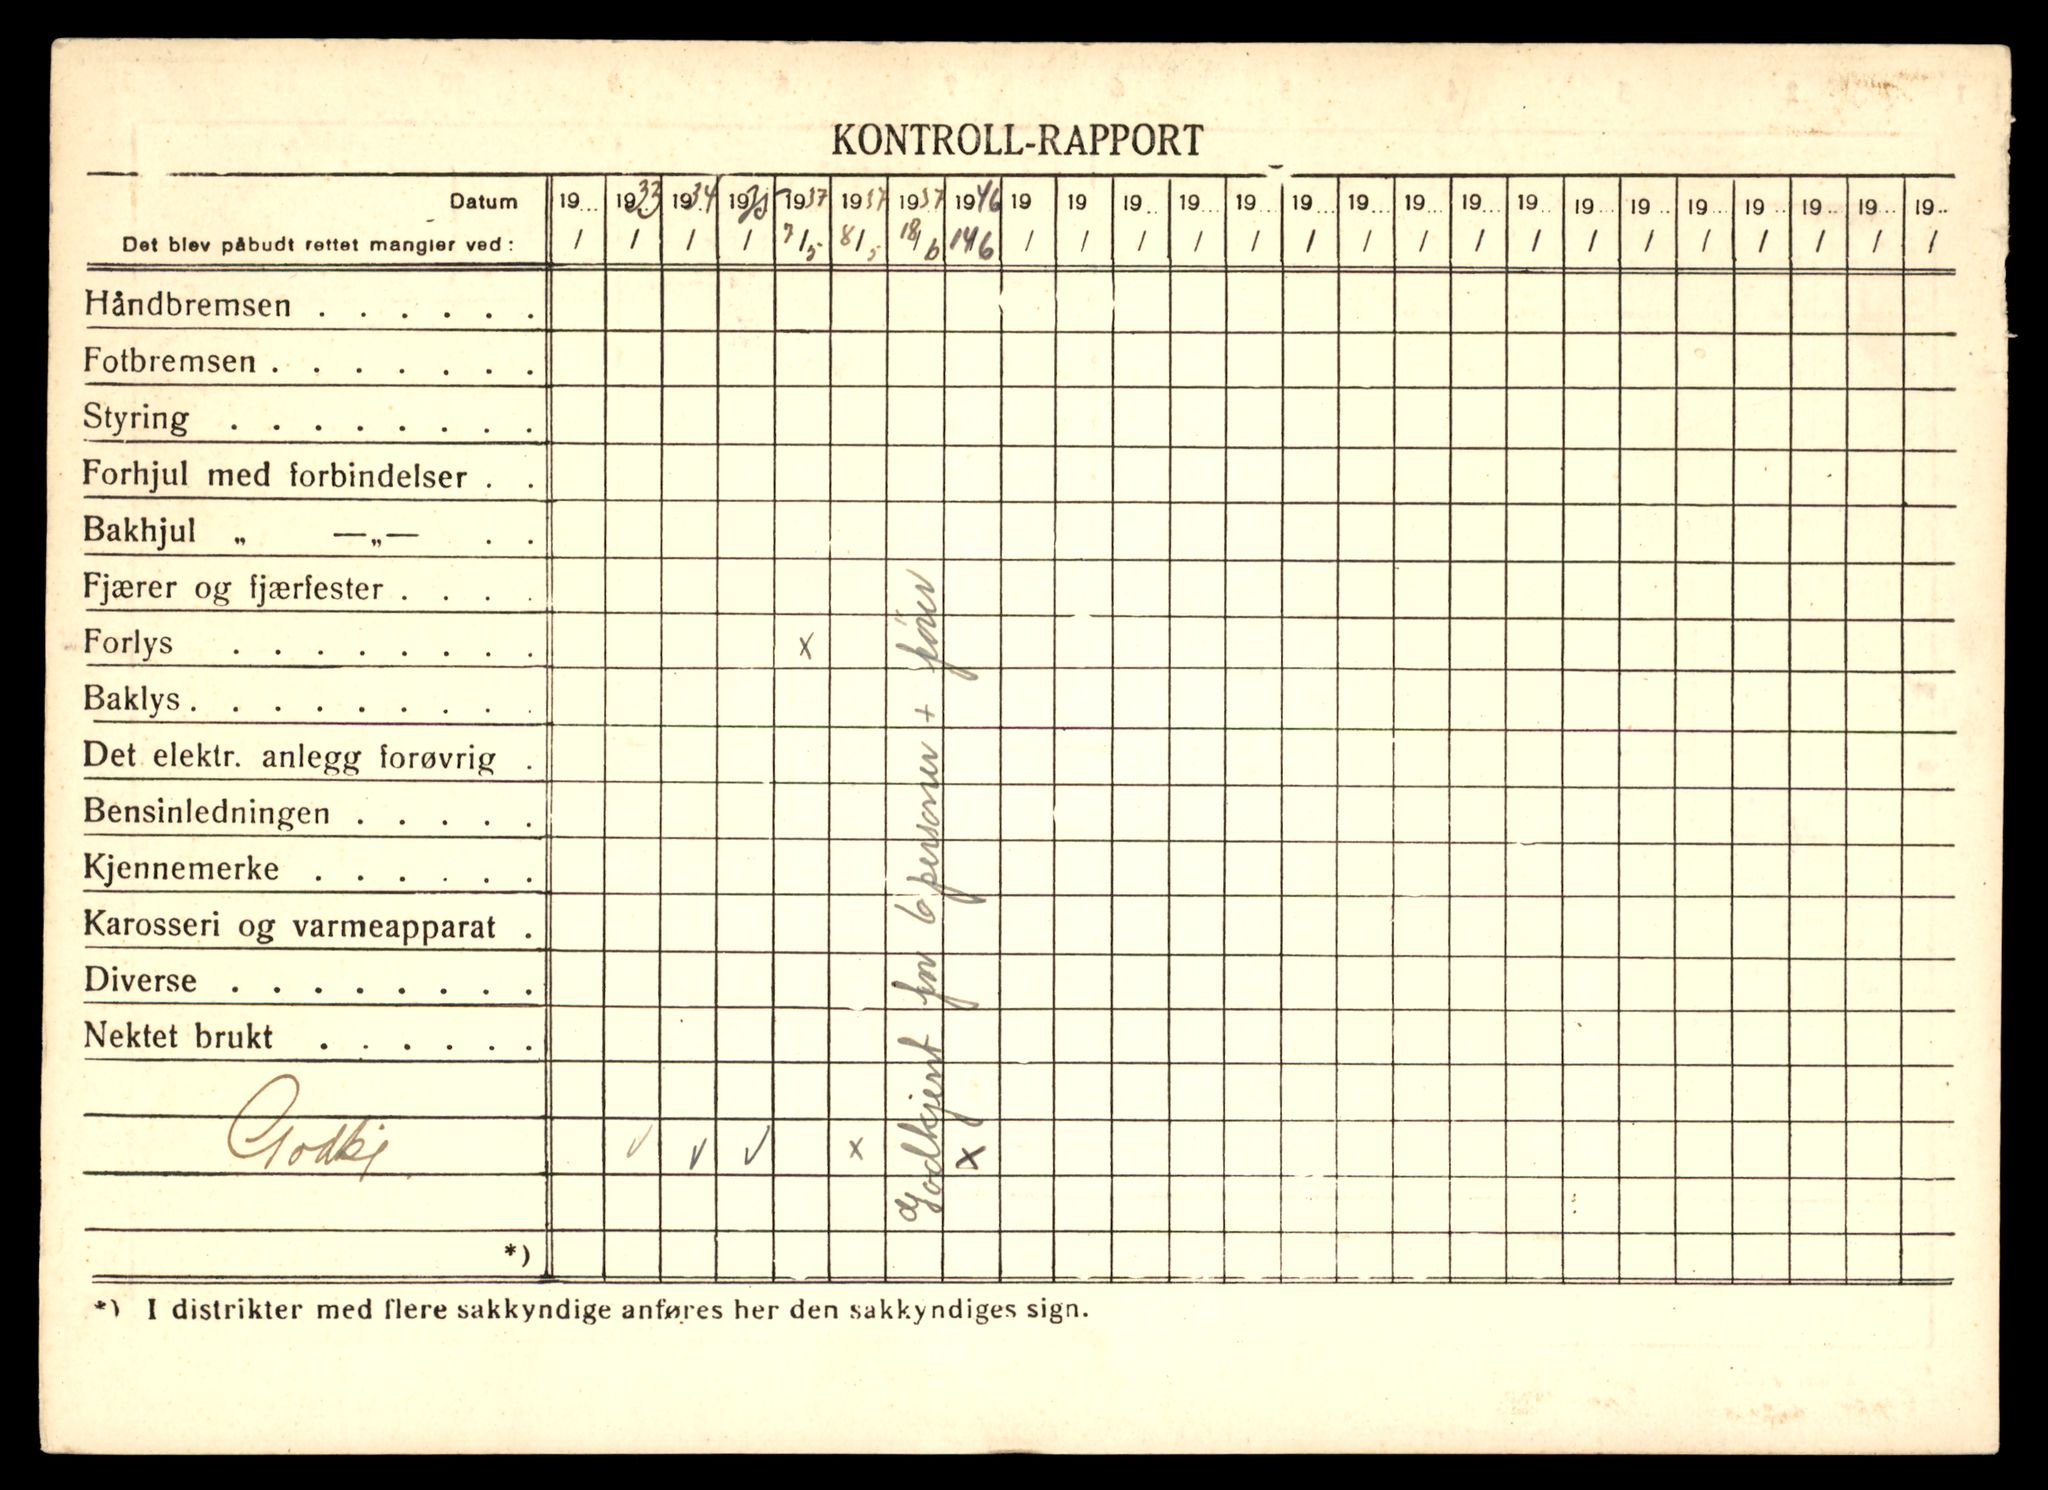 KONTROLL-RAPPORT
Datum 19... 1933 1934 1935 1937 1937 1937 1946 19 19 19... 19... 19... 19... 19... 19... 19... 19... 19... 19... 19... 19... 19... 19... 19...
Det blev påbudt rettet mangler ved: / / / / 7/5 8/5 18/6 14/6 / / / / / / / / / / / / / / / / /
Håndbremsen . . . . . .
Fotbremsen . . . . . . .
Styring . . . . . . . .
Forhjul med forbindelser . .
Bakhjul „ —„— . .
Fjærer og fjærfester . . . .
Forlys . . . . . . . . x
Baklys . . . . . . . . .
Det elektr. anlegg forøvrig .
Bensinledningen . . . . .
Kjennemerke . . . . . .
Karosseri og varmeapparat .
Diverse . . . . . . . .
Nektet brukt . . . . . .
Godkj. v v v x x
Godkjent for 6 personer + fører
*)
*) I distrikter med flere sakkyndige anføres her den sakkyndiges sign.